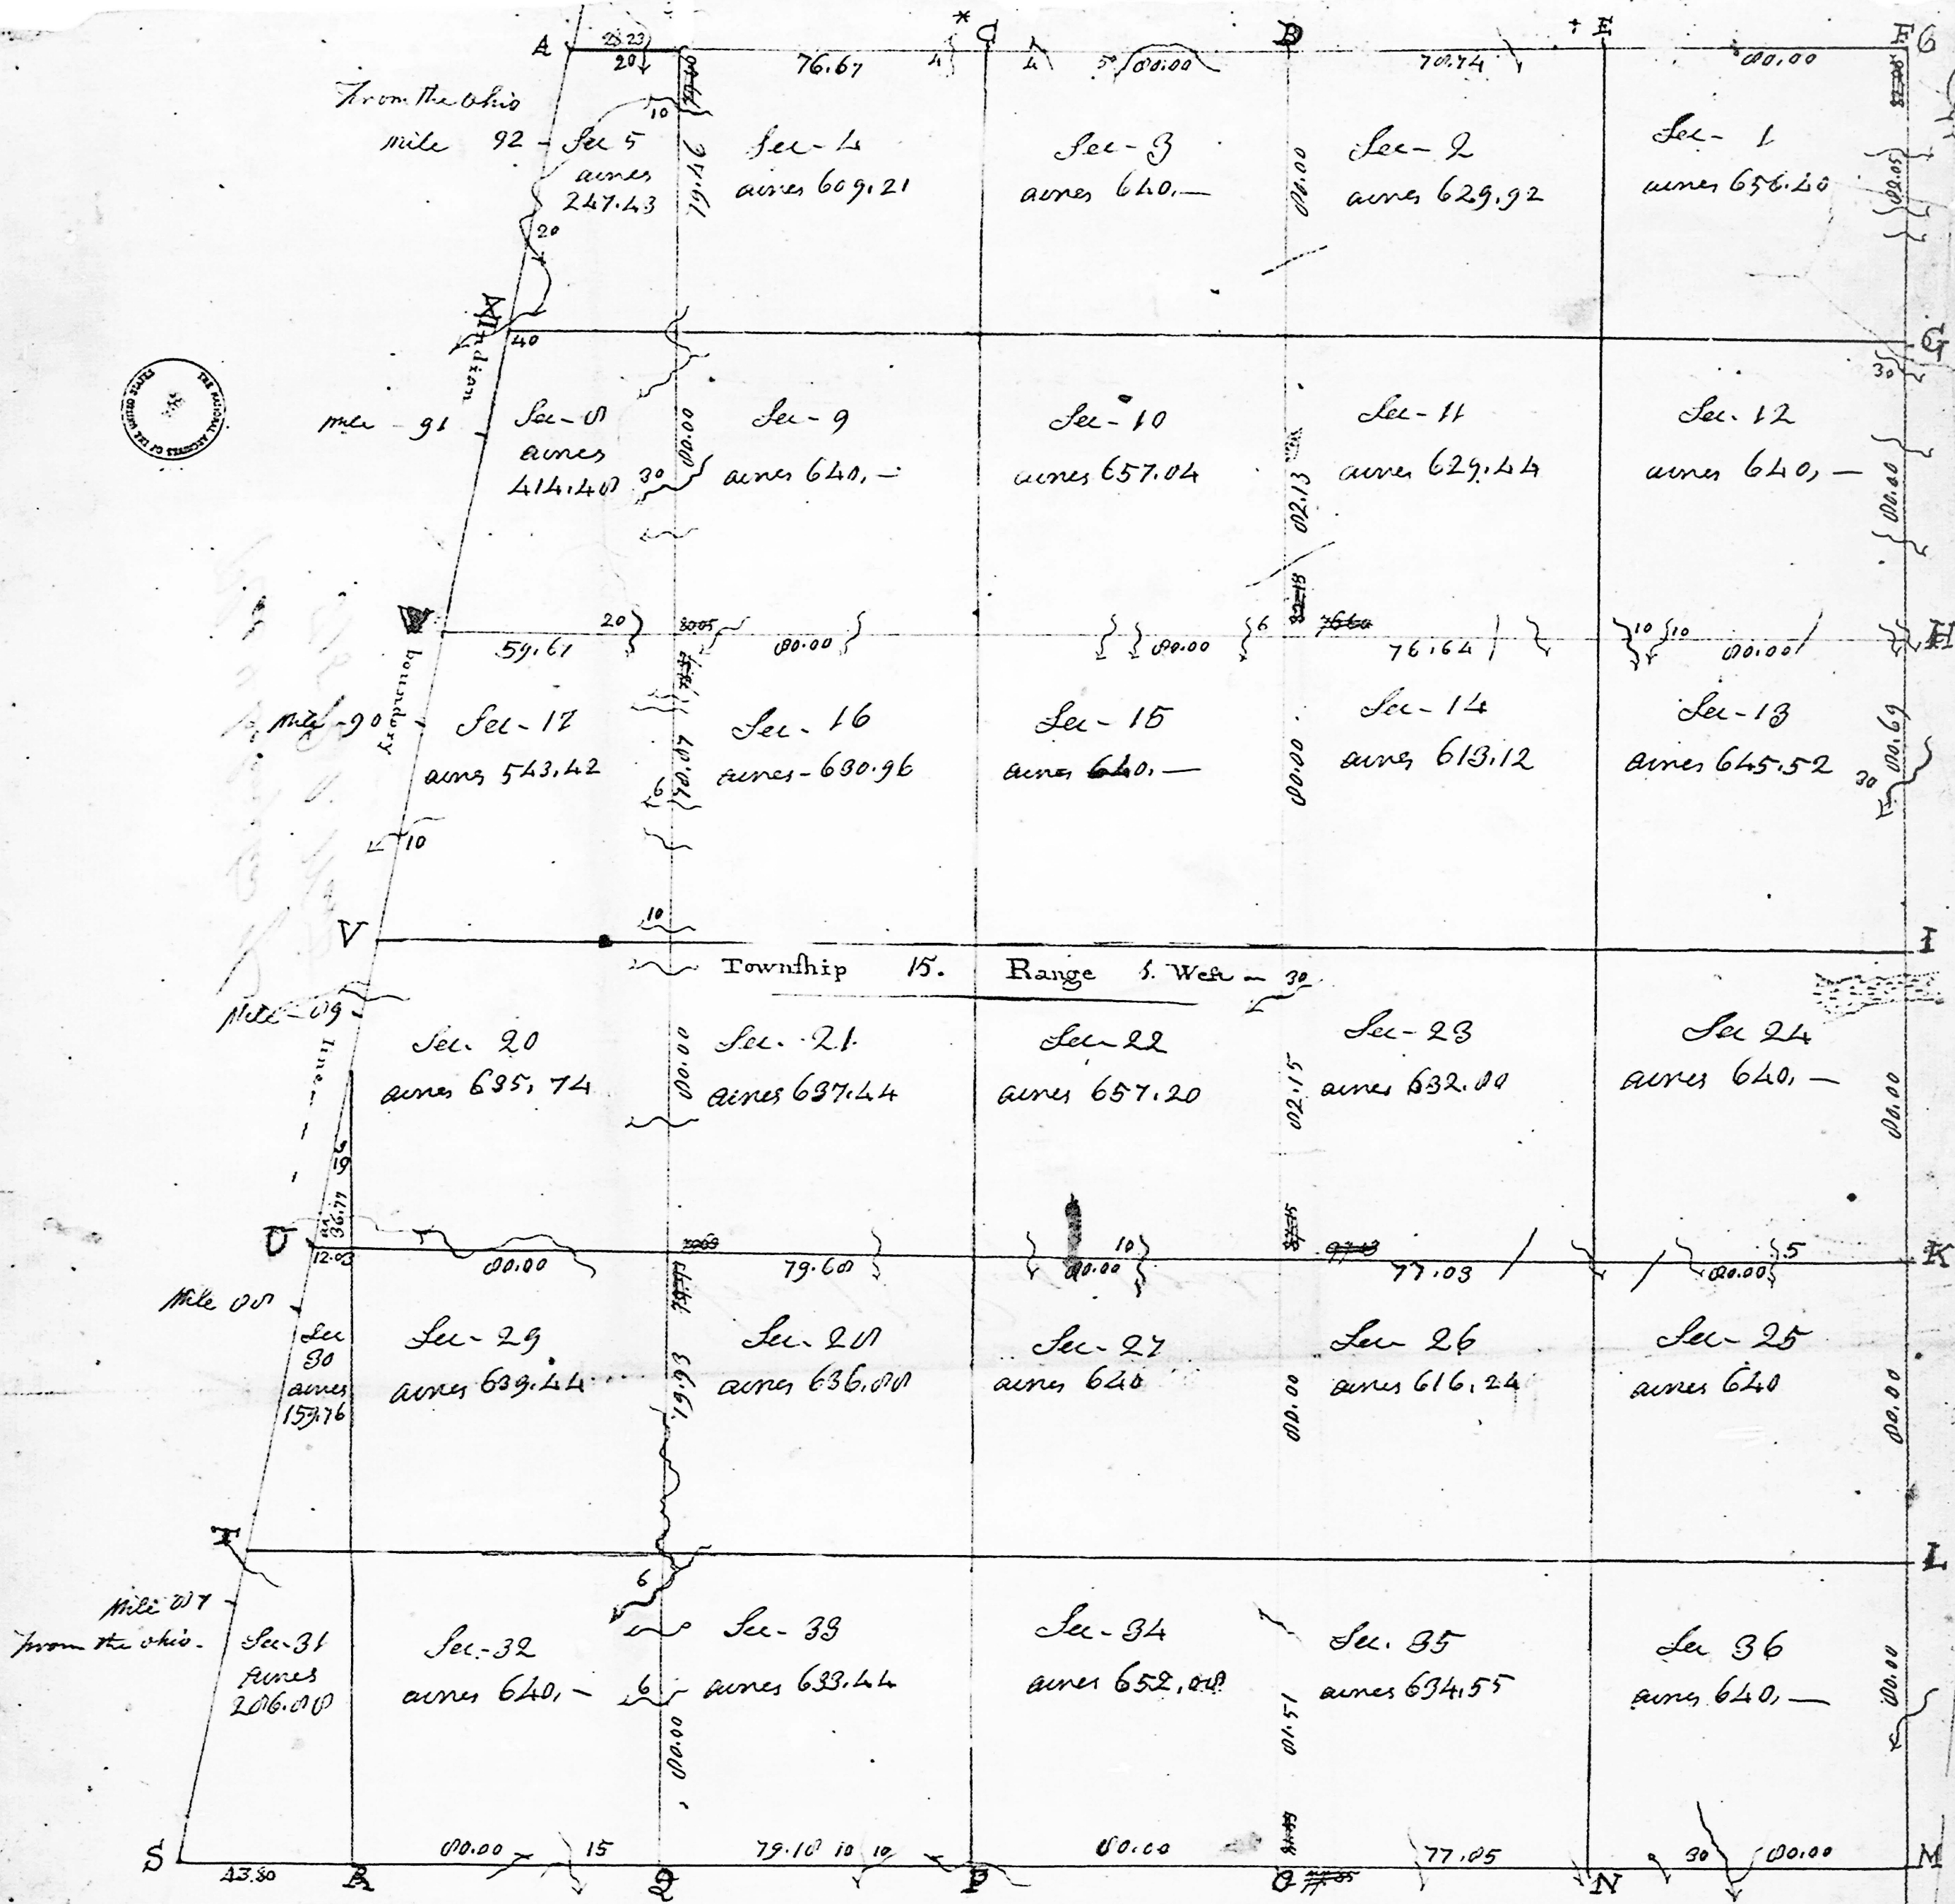 A 20 76.67 4 C 4 5 80.00 D 78.74 E 80.00 F 6
From the Ohio
mile 92
Sec 5
acres
247.43
10
20
Sec - 4
acres 609.21
79.46
Sec - 3
acres 640.—
80.00
Sec - 2
acres 629.92
Sec - 1
acres 656.40
82.05
X 40 G
30
Indian
mile - 91
Sec - 8
acres
414.48
30
80.00
Sec - 9
acres 640, —
Sec - 10
acres 657.04
82.13
Sec - 11
acres 629.44
Sec. 12
acres 640, —
80.00
W 59.61 20 80.00 80.00 6 76.64 10 10 80.00 H
boundary
Mile - 90
Sec - 17
acres 543.42
10
6
Sec - 16
acres - 630.96
Sec - 15
acres 640. —
80.00
Sec - 14
acres 613.12
Sec - 13
acres 645.52
80.69
30
V 10 I
Township 15. Range 1. West — 30
Mile - 89
line
Sec. 20
acres 635, 74
80.00
Sec. 21.
acres 637.44
Sec - 22
acres 657.20
82.15
Sec - 23
acres 632.80
Sec 24
acres 640, —
80.00
19
36.77
U 12.03 80.00 79.68 80.00 10 77.03 80.00 5 K
Mile 88
Sec
30
acres
159.76
Sec - 29
acres 639.44
79.93
Sec - 28
acres 636.88
Sec - 27
acres 640
80.00
Sec - 26
acres 616.24
Sec - 25
acres 640
80.00
T L
Mile 87
from the Ohio.
Sec - 31
Acres
286.88
Sec - 32
acres 640, —
6
6
80.00
Sec - 33
acres 633.44
Sec - 34
acres 652.08
81.51
Sec. 35
acres 634.55
Sec 36
acres 640, —
80.00
S 43.80 R 80.00 15 Q 79.18 10 10 P 80.00 O 77.85 N 30 80.00 M
THE NATIONAL ARCHIVES OF THE UNITED STATES